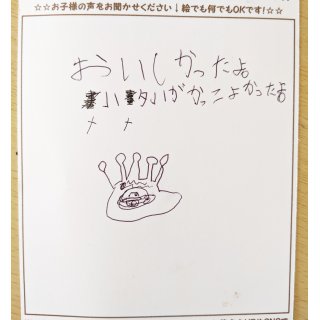 ☆☆お子様の声をお聞かせください↓絵でも何でもOKです!☆☆
おういしかったよ
がかっこよかったよ